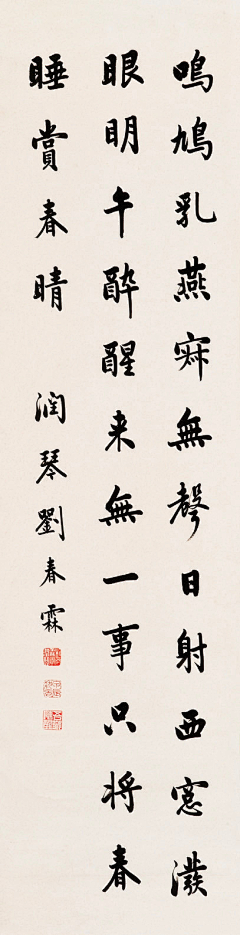 鳴鳩乳燕寂無聲日射西窓潑
眼明午醉醒来無一事只将春
睡賞春晴 潤琴劉春霖